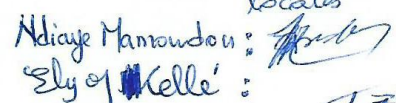 locales
Ndiaye Mamoudou :
Ely of Kellé :